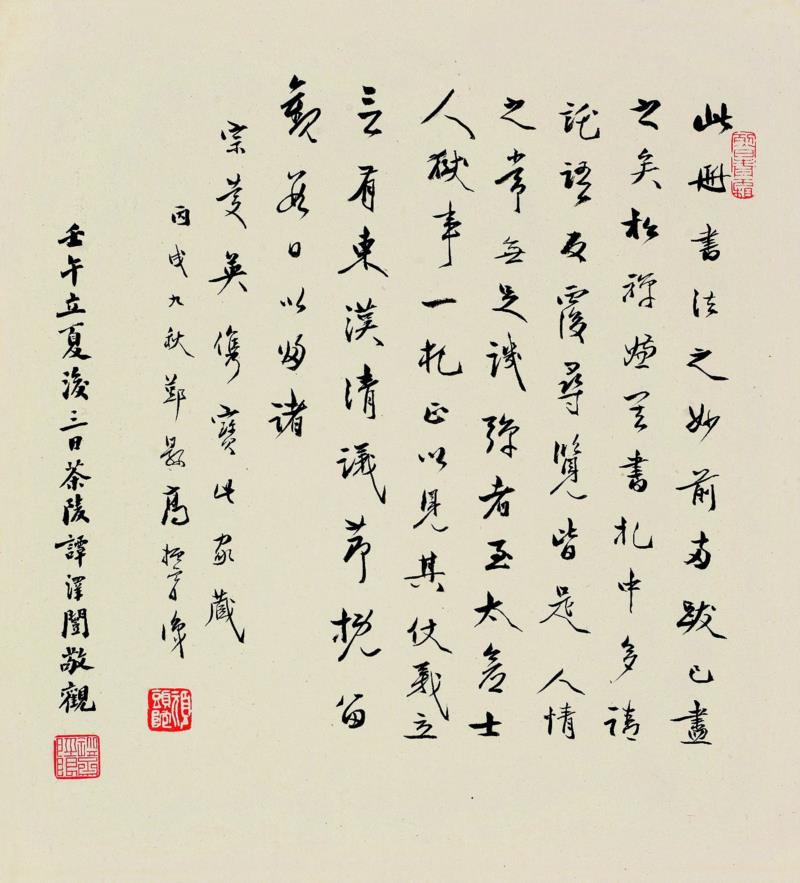 此冊書法之妙前兩跋已盡
之矣松禪書札中多請
託語反覆尋覽皆是人情
之常無足譏彈者至太倉士
人獄事一札正以見其仗義立
言有東漢清議節概留
觀日以歸諸
宗英儁寶此家藏
丙戌九秋鄞縣高振霄識
頑頭陀
壬午立夏後三日茶陵譚澤闓敬觀